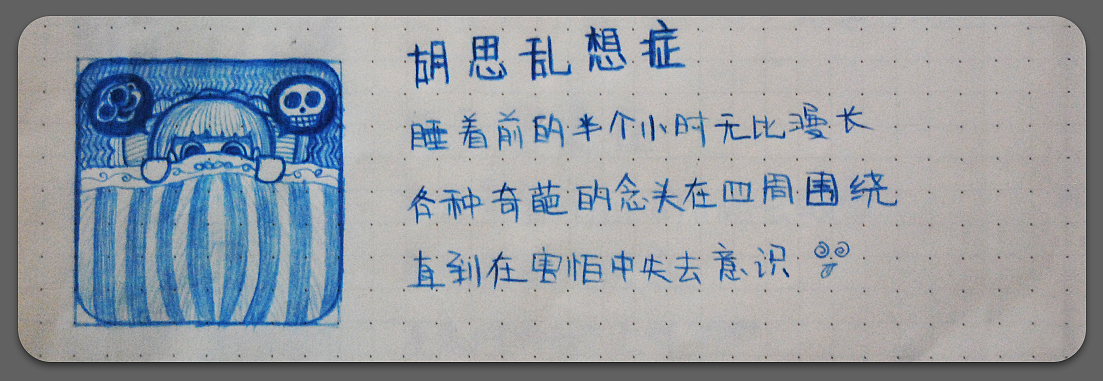 胡思乱想症
睡着前的半个小时无比漫长
各种奇葩的念头在四周围绕
直到在害怕中失去意识